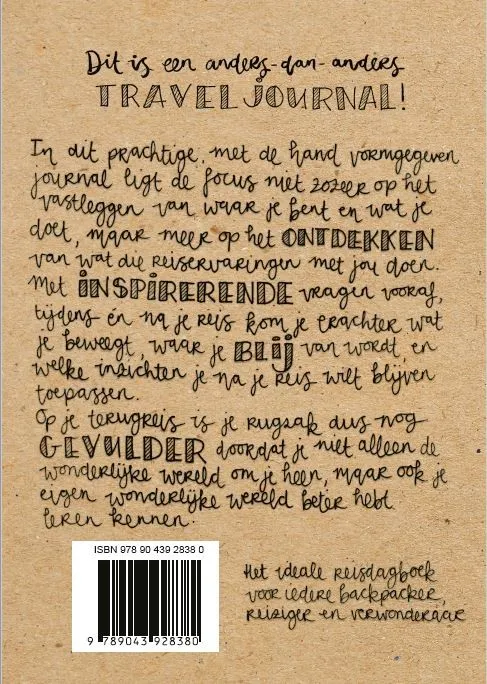 Dit is een anders-dan-anders
TRAVEL JOURNAL!
In dit prachtige, met de hand vormgegeven
journal ligt de focus niet zozeer op het
vastleggen van waar je bent en wat je
doet, maar meer op het ONTDEKKEN
van wat die reiservaringen met jou doen.
Met INSPIRERENDE vragen vooraf,
tijdens én na je reis kom je erachter wat
je beweegt, waar je BLIJ van wordt, en
welke inzichten je na je reis wilt blijven
toepassen.
Op je terugreis is je rugzak dus nog
GEVULDER doordat je niet alleen de
wonderlijke wereld om je heen, maar ook je
eigen wonderlijke wereld beter hebt
leren kennen.
ISBN 978 90 439 2838 0
9 789043 928380
Het ideale reisdagboek
voor iedere backpacker,
reiziger en verwonderaar